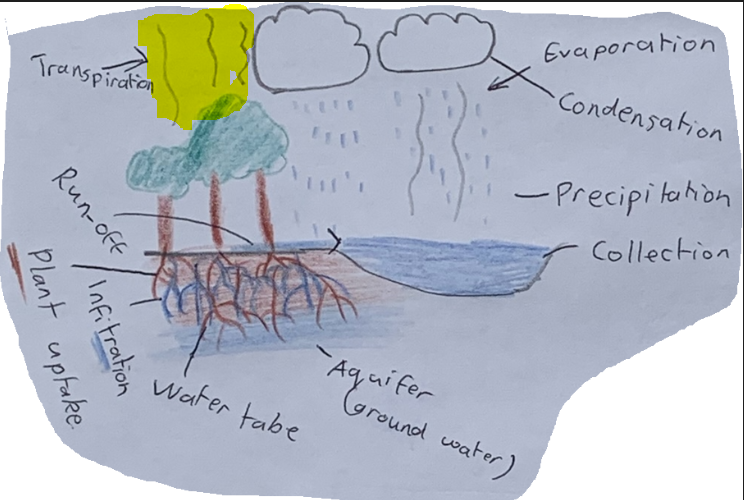 Transpiration
Evaporation
Condensation
Precipitation
Collection
Run-off
Plant uptake
Infitration
Water tabe
Aquifer
(ground water)